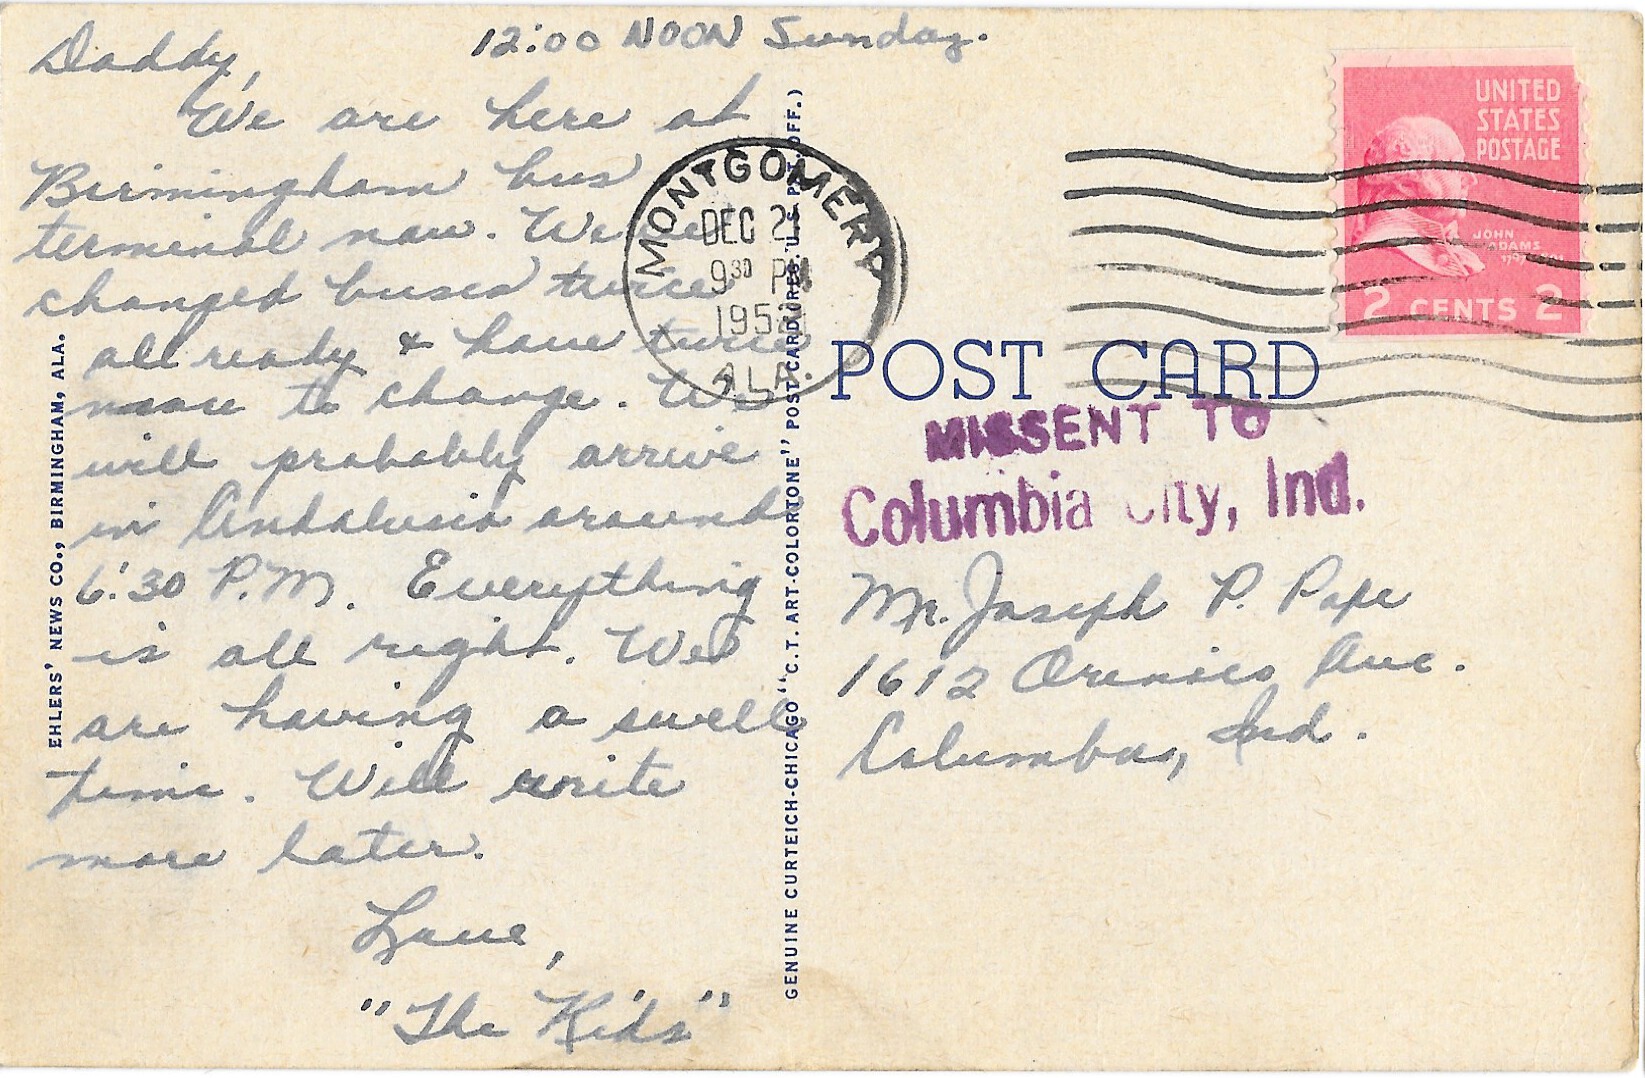 12:00 NOON Sunday.
Daddy,
We are here at
Birmingham bus
terminal now. We've
changed buses twice
all ready & have twice
more to change. We
will probably arrive
in Andalusia around
6:30 P.M. Everything
is all right. We
are having a swell
time. Will write
more later.
Love,
"The Kids"
EHLERS' NEWS CO., BIRMINGHAM, ALA.
GENUINE CURTEICH-CHICAGO "C.T. ART-COLORTONE" POST CARD (REG. U.S. PAT. OFF.)
MONTGOMERY
DEC 21
9 30 PM
1952
ALA.
UNITED
STATES
POSTAGE
JOHN
ADAMS
2 CENTS 2
POST CARD
MISSENT TO
Columbia City, Ind.
Mr. Joseph P. Pape
1612 Orinoco Ave.
Columbus, Ind.